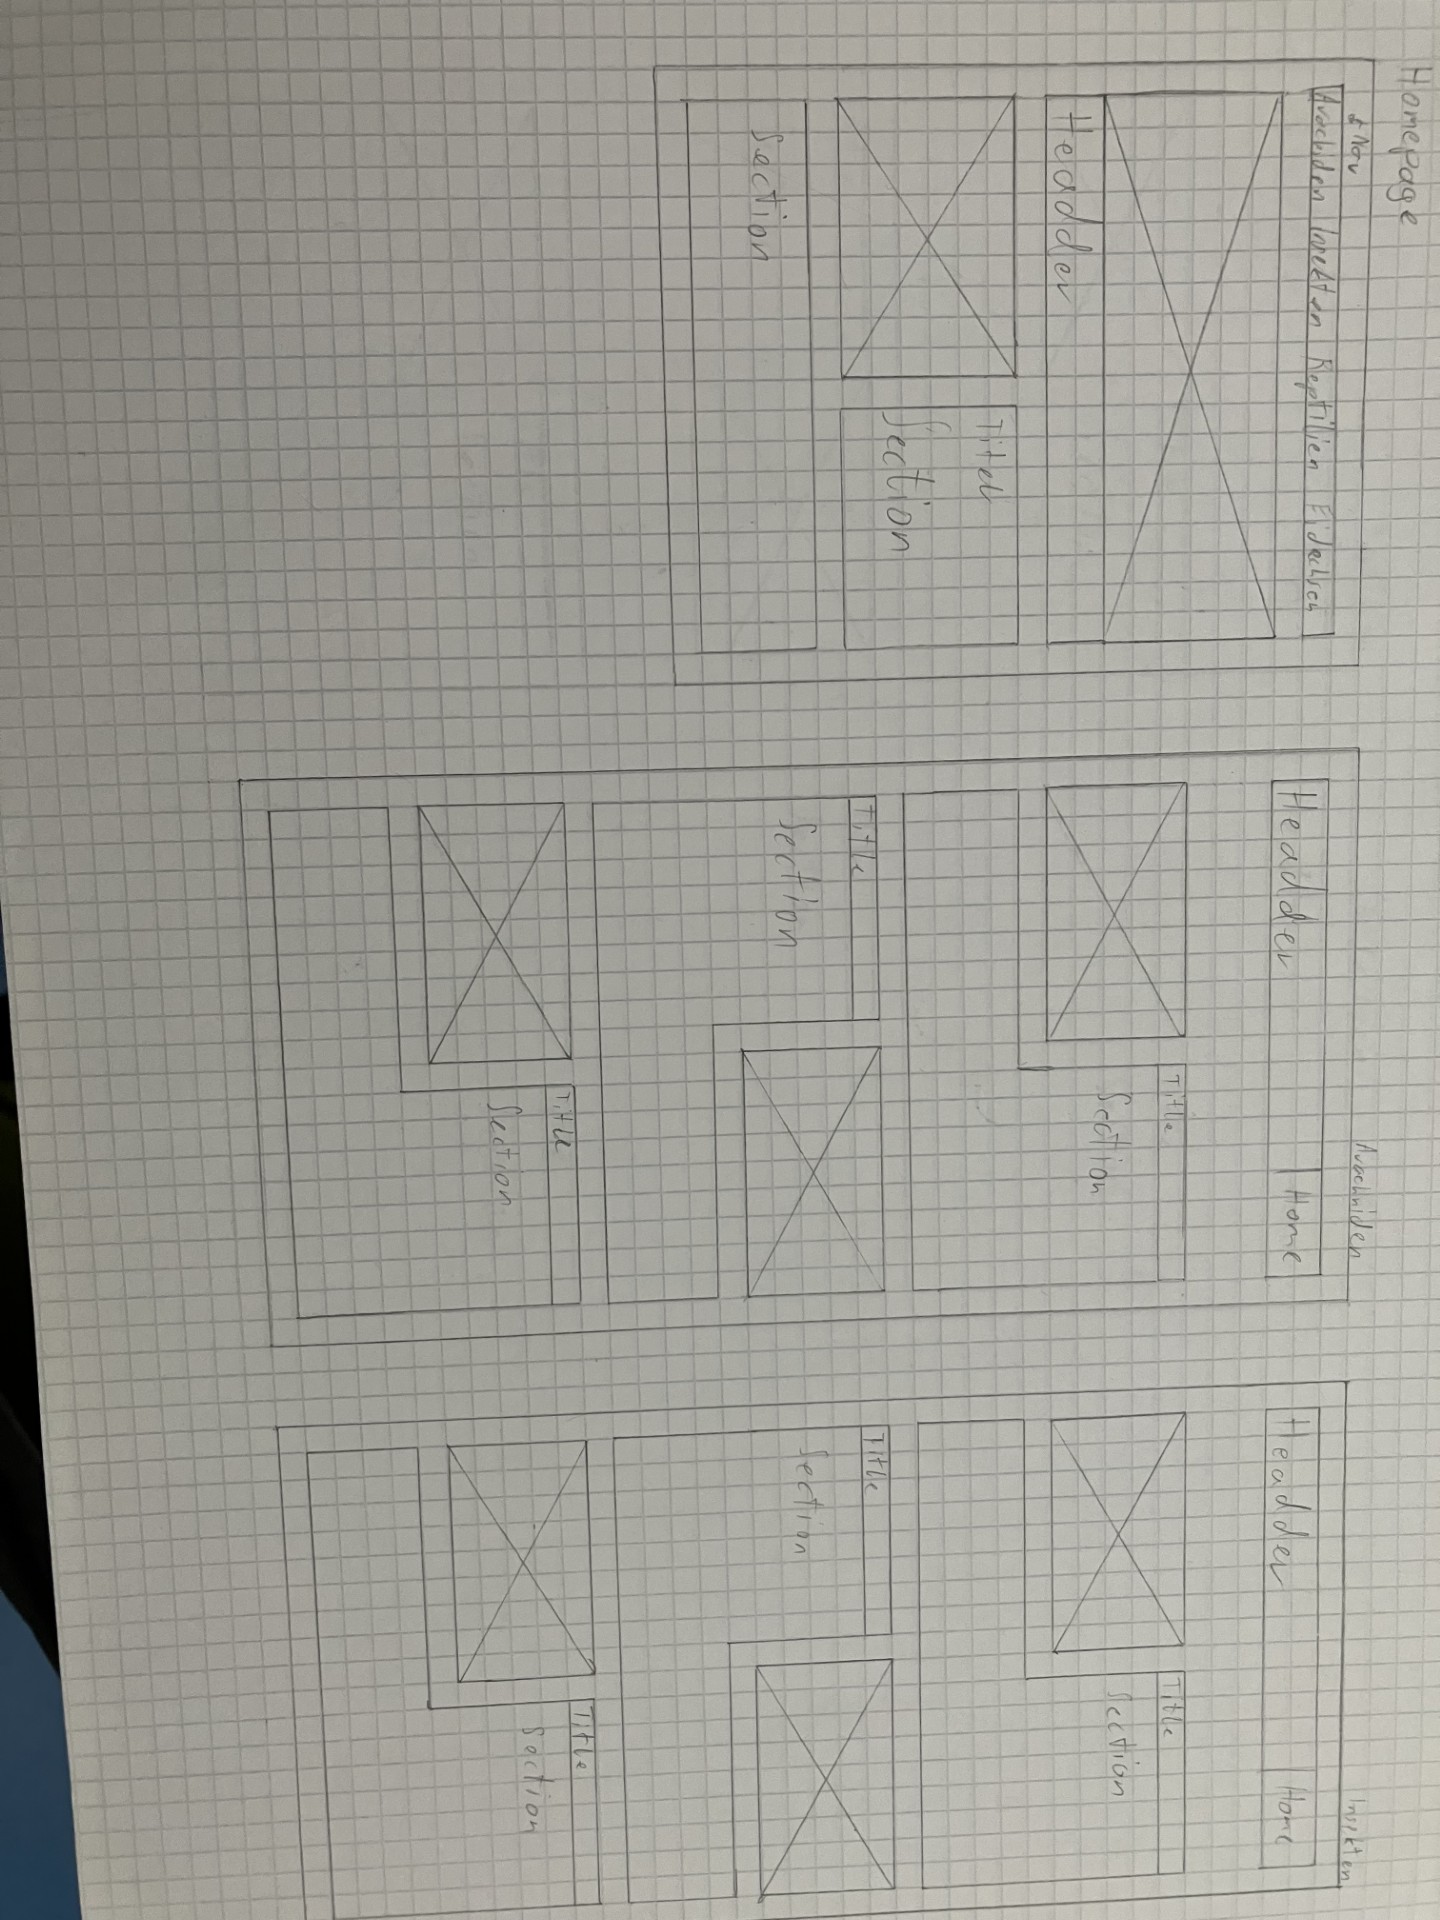 Homepage
↓ Nav
Arachiden Insekten Reptilien Eidechsen
Headder
Titel
Section
Section
Arachniden
Headder
Home
Title
Section
Title
Section
Title
Section
Insekten
Headder
Home
Title
Section
Title
Section
Title
Section